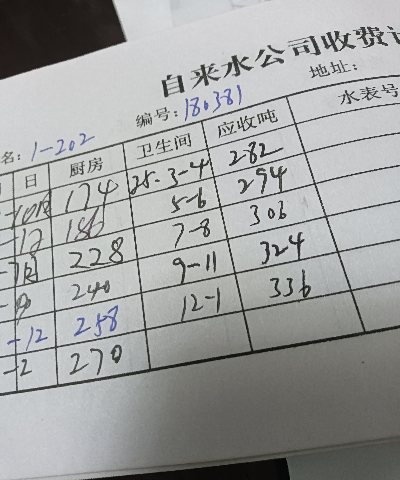 自来水公司收费
编号: 180381 地址:
名: 1-202
日 厨房 卫生间 应收吨 水表号
174 25.3-4 282
186 5-6 294
228 7-8 306
240 9-11 324
-12 258 12-1 336
-2 270